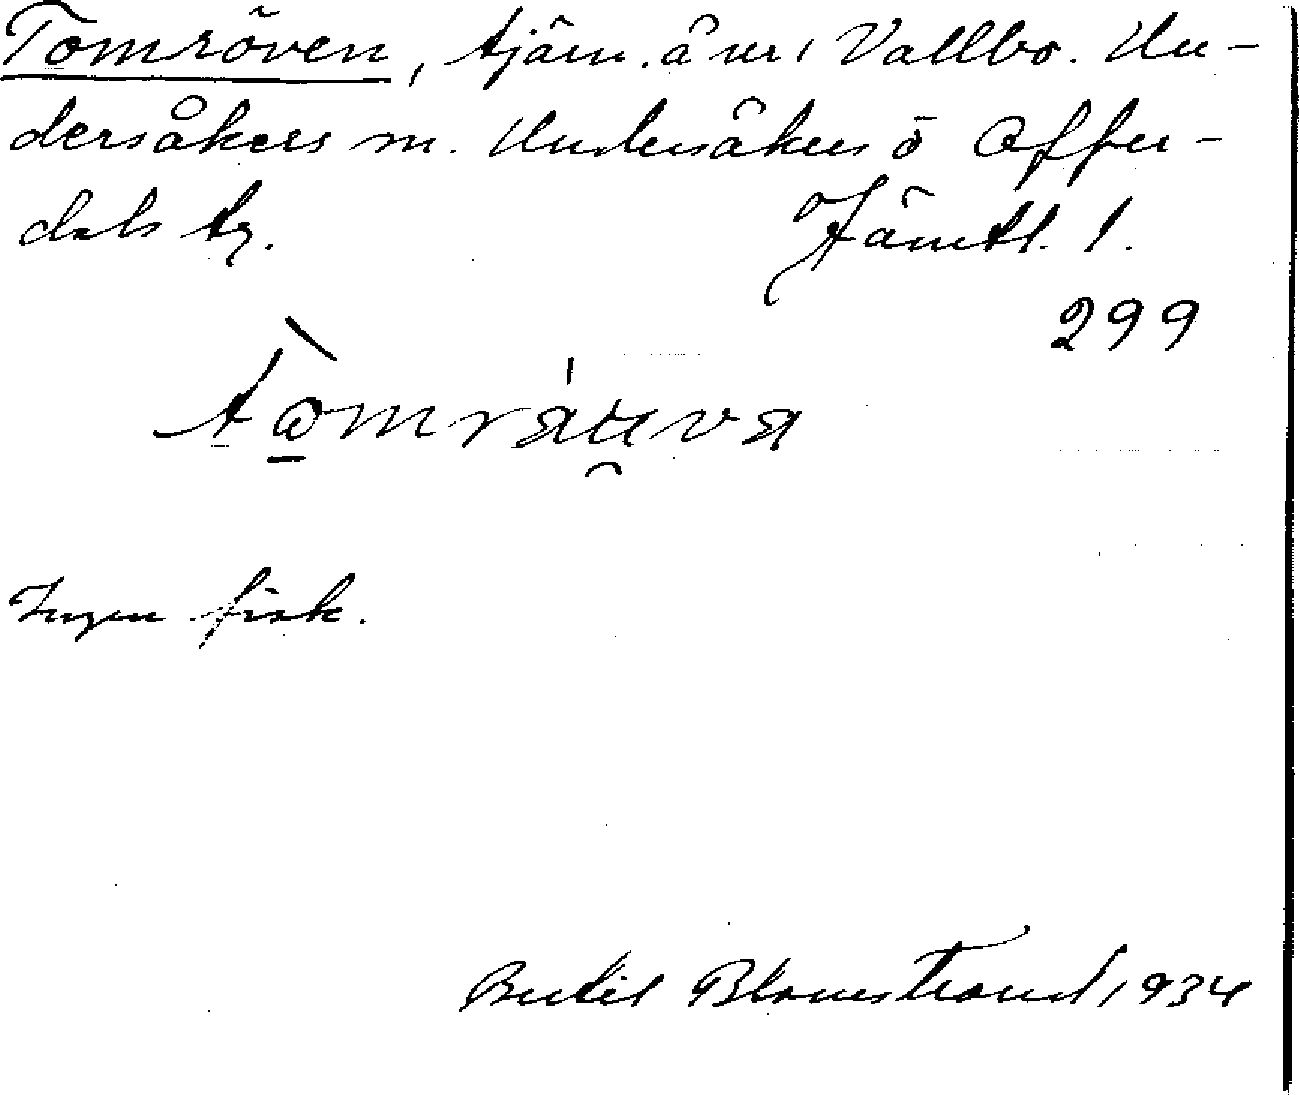 Tomröven, tjärn. å ur, Vallbo. Un-
dersåkers m. Undersåkers o Offer-
dals tg. Jämtl. l.
299
tòmrá u̯va
Ingen fisk.
Bertil Blomstrand, 1934